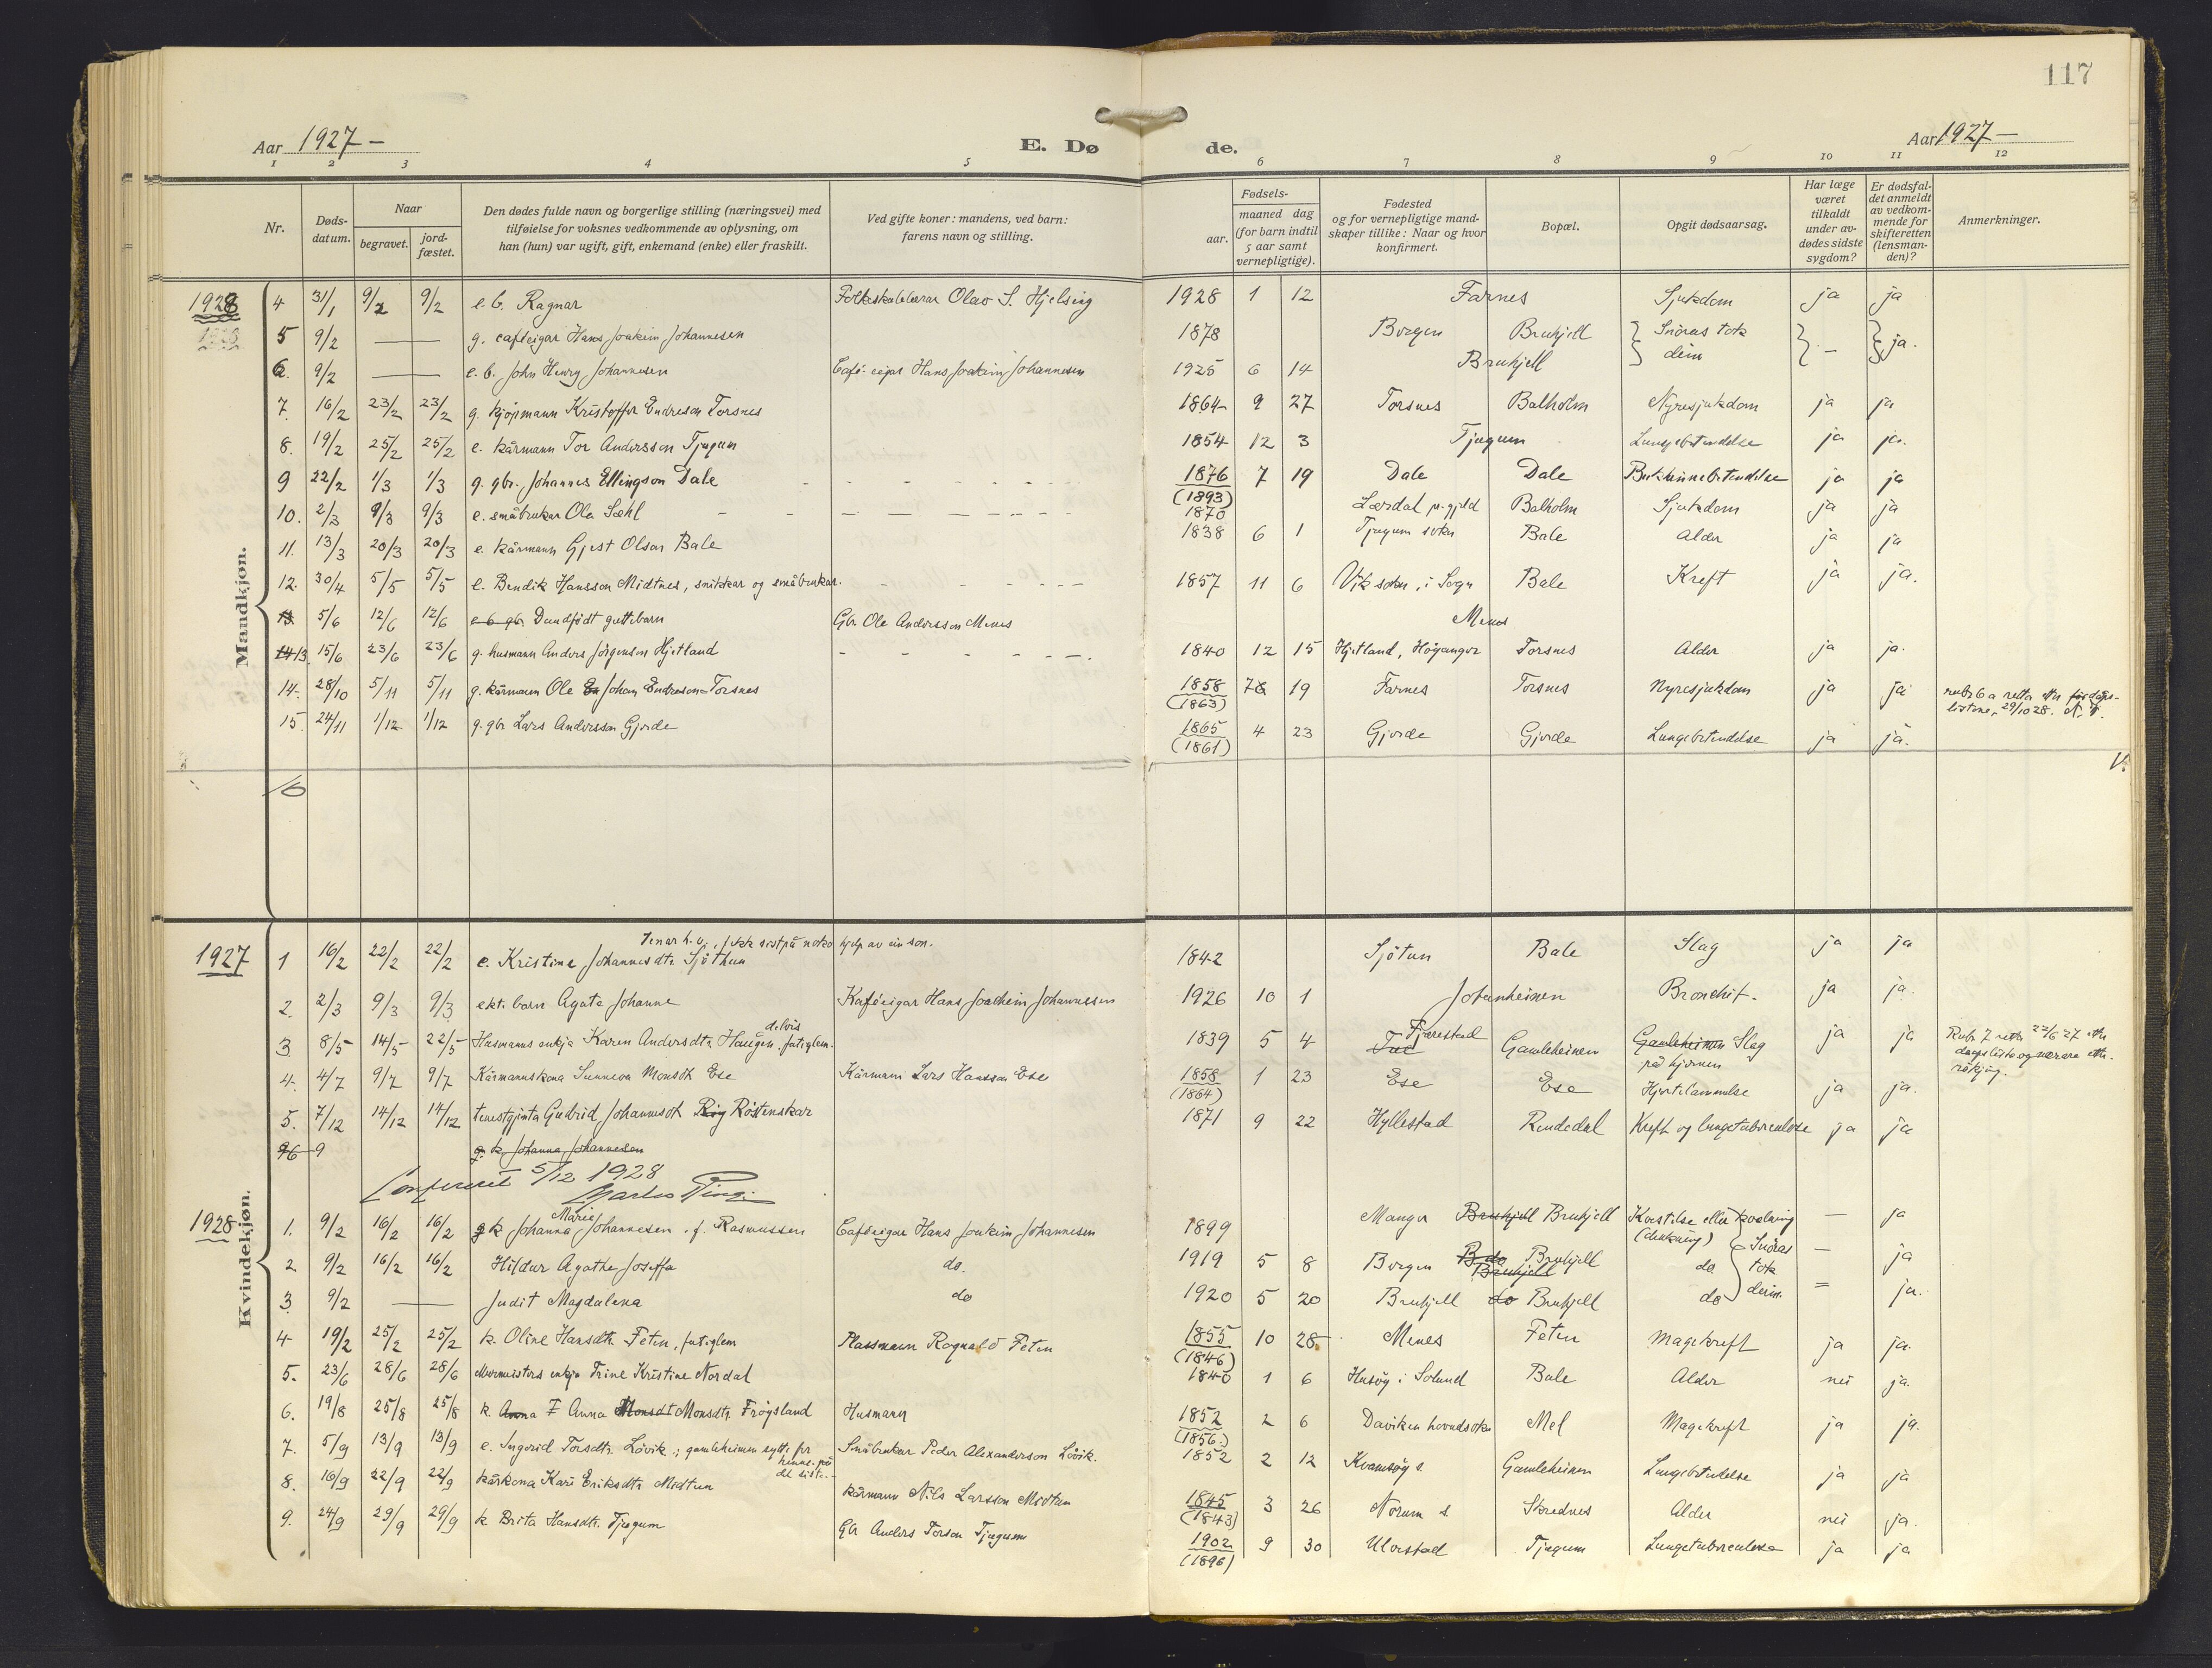 117
Aar 1927 –
E. Dø
de.
Aar 1927 –
1 2 3 4 5 6 7 8 9 10 11 12
Nr.
Døds-
datum.
Naar
begravet.
jord-
fæstet.
Den dødes fulde navn og borgerlige stilling (næringsvei) med
tilføielse for voksnes vedkommende av oplysning, om
han (hun) var ugift, gift, enkemand (enke) eller fraskilt.
Ved gifte koner: mandens, ved barn:
farens navn og stilling.
Fødsels-
aar.
maaned dag
(for barn indtil
5 aar samt
vernepligtige).
Fødested
og for vernepligtige mand-
skaper tillike: Naar og hvor
konfirmert.
Bopæl.
Opgit dødsaarsag.
Har læge
været
tilkaldt
under av-
dødes sidste
sygdom?
Er dødsfal-
det anmeldt
av vedkom-
mende for
skifteretten
(lensman-
den)?
Anmerkninger.
Mandkjøn.
1928 4 31/1 9/2 9/2 e. b. Ragnar Folkeskulelærar Olav S. Hjelsing 1928 1 12 Farnes Sjukdom ja ja
5 9/2 — g. cafeeigar Hans Joakim Johannesen 1878 Borgen Brukjell Snöras tok ja.
6. 9/2 — e. b. John Henry Johannesen Café-eigar Hans Joakim Johannesen 1925 6 14 Brukjell deim –
7. 16/2 23/2 23/2 g. kjöpmann Kristoffer Endreson Torsnes 1864 9 27 Torsnes Balholm Nyresjukdom ja ja
8. 19/2 25/2 25/2 e. kårmann Tor Andersson Tjugum 1854 12 3 Tjugum Lungebetendelse ja ja.
9 22/2 1/3 1/3 g. gbr. Johannes Ellingson Dale 1876 (1893) 7 19 Dale Dale Bukhinnebetendelse ja ja
10. 2/3 9/3 9/3 e. småbrukar Ola Sæhl 1870 Lærdal p.gjeld Balholm Sjukdom ja ja
11. 13/3 20/3 20/3 e. kårmann Gjest Olson Bale 1838 6 1 Tjugum sokn Bale Alder ja ja
12. 30/4 5/5 5/5 e. Bendik Hansson Midtnes, snikkar og småbrukar. 1857 11 6 Vik sokn, i Sogn Bale Kreft ja ja.
13. 5/6 12/6 12/6 e b gb. Daudfödt guttebarn Gbr. Ole Andersson Menes Menes
14 13. 15/6 23/6 23/6 g. husmann Anders Jörgenson Hjetland 1840 12 15 Hjetland, Höyanger Torsnes Alder ja ja.
14. 28/10 5/11 5/11 g. kårmann Ole En Johan Endreson Torsnes 1858 (1863) 7 19 Farnes Torsnes Nyresjukdom ja ja rubr 6 a retta etter
listene, 29/10 28.
15. 24/11 1/12 1/12 g. gbr Lars Andersson Gjerde 1865 (1861) 4 23 Gjerde Gjerde Lungebetendelse ja ja.
16
Kvindekjøn.
sist på noko hjelp av ein son.
1927 1 16/2 22/2 22/2 e. Kristine Johannesdtr. Sjöthun 1842 Sjötun Bale Slag ja ja
2. 2/3 9/3 9/3 ekt. barn Agata Johanne Kaféeigar Hans Joachim Johannessen 1926 10 1 Jotunheimen Bronchit. ja ja.
delvis
3. 8/5 14/5 22/5 Husmanns enkja Karen Andersdtr. Haugen, fatiglem. 1839 5 4 Fjærestad Gamleheimen Gamleheimen Slag ja ja Rubr. 7 retta 22/6 27 etter
på hjernen
dagsliste og nærare etter-
røkjing.
4. 4/7 9/7 9/7 Kårmannskona Sunneva Monsdt. Ese Kårmann Lars Hansson Ese 1858 (1864) 1 23 Ese Ese Hjertelammelse ja ja.
5. 7/12 14/12 14/12 tenestgjenta Gudrid Johannesdt. Röy Röstenskar 1871 9 22 Hyllestad Rendedal Kreft og lungetuberculose ja ja
9 g. k. Johanna Johannesen
Conferert 5/12 1928
1928 1. 9/2 16/2 16/2 g k Johanna Marie Johannesen f. Rasmussen Caféeigar Hans Joakim Johannesen 1899 Manger Brukjell Brukjell Kvestelse eller kvelning – ja
2. 9/2 16/2 16/2 Hildur Agathe Joseffa do. 1919 5 8 Borgen Brukjell do Snöras tok – ja
3. 9/2 — Judit Magdalena do 1920 5 20 Brukjell do Brukjell do deim. = ja.
4 19/2 25/2 25/2 k. Oline Hansdtr. Feten, fatiglem Plassmann Rognald Feten 1855 (1846) 10 28 Menes Feten Magekreft ja ja.
5. 23/6 28/6 28/6 Murmeisters enkja Trine Kristine Nordal 1840 1 6 Husöy i Solund Bale Alder nei ja.
6. 19/8 25/8 25/8 k. Anna F Anna Monsdt Monsdtr. Fröysland Husmann 1852 (1856) 2 6 Daviken hovudsokn Mel Magekreft ja ja.
7. 5/9 13/9 13/9 e. Ingerid Torsdtr. Lövik; gamleheimen sytte for Småbrukar Peder Alexanderson Lövik. 1852 2 12 Kvamsöy s. Gamleheimen Lungebetendelse ja ja
henne på
det siste.
8. 16/9 22/9 22/9 kårkona Kari Eriksdtr. Midtun kårmann Nils Larsson Midtun 1845 (1843) 3 26 Norum s. Skrednes Alder nei ja.
9. 24/9 29/9 29/9 k. Brita Hansdtr. Tjugum Gbr Anders Torson Tjugum 1902 (1896) 9 30 Ulvestad Tjugum Lungetuberculose ja ja